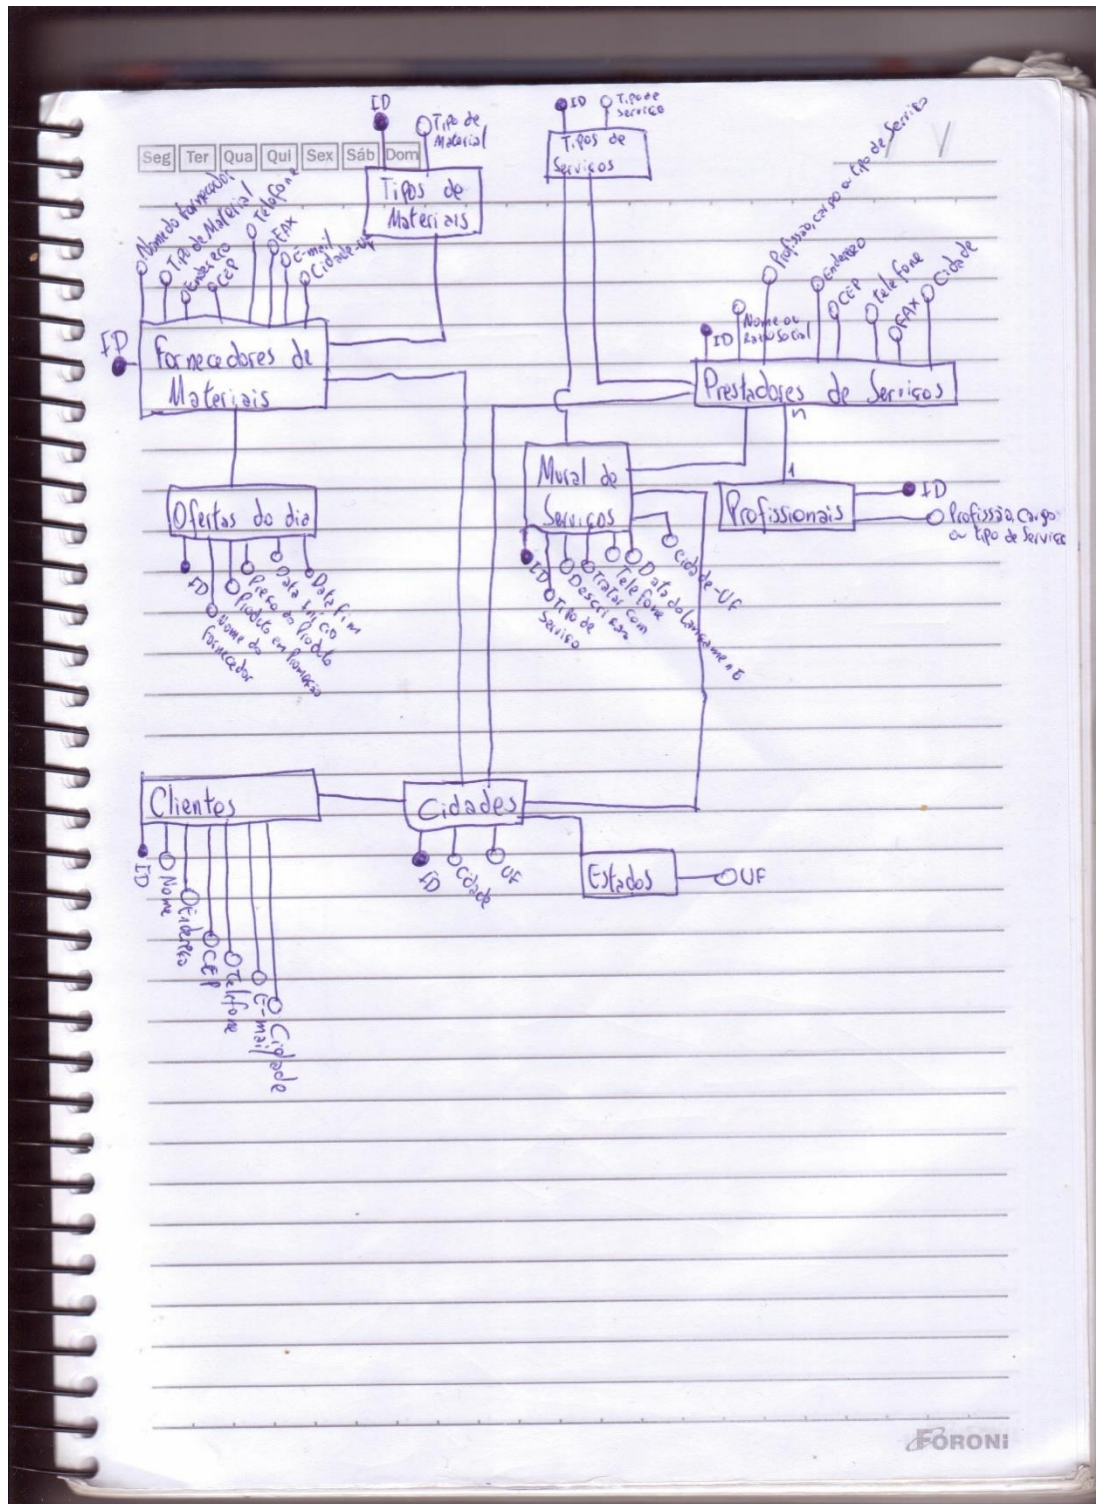 ID
Tipo de
Material
ID
Tipo de
serviço
Seg Ter Qua Qui Sex Sáb Dom
Tipos de
Materiais
Tipos de
Serviços
Nome do fornecedor
Tipo de Material
Endereço
CEP
Telefone
FAX
E-mail
Cidade-UF
ID
Fornecedores de
Materiais
ID
Nome ou
Razão Social
Profissão, cargo ou tipo de Serviço
Endereço
CEP
Telefone
FAX
Cidade
Prestadores de Serviços
n
1
Profissionais
ID
Profissão, Cargo
ou tipo de Serviço
Ofertas do dia
ID
Nome do
fornecedor
Produto em Promoção
Preço do Produto
Data início
Data fim
Mural de
Serviços
ID
Tipo de
Serviço
Descrição
Tratar com
Telefone
Data do Lançamento
Cidade-UF
Clientes
ID
Nome
Endereço
CEP
Telefone
E-mail
Cidade
Cidades
ID
Cidade
UF
Estados
UF
FORONI